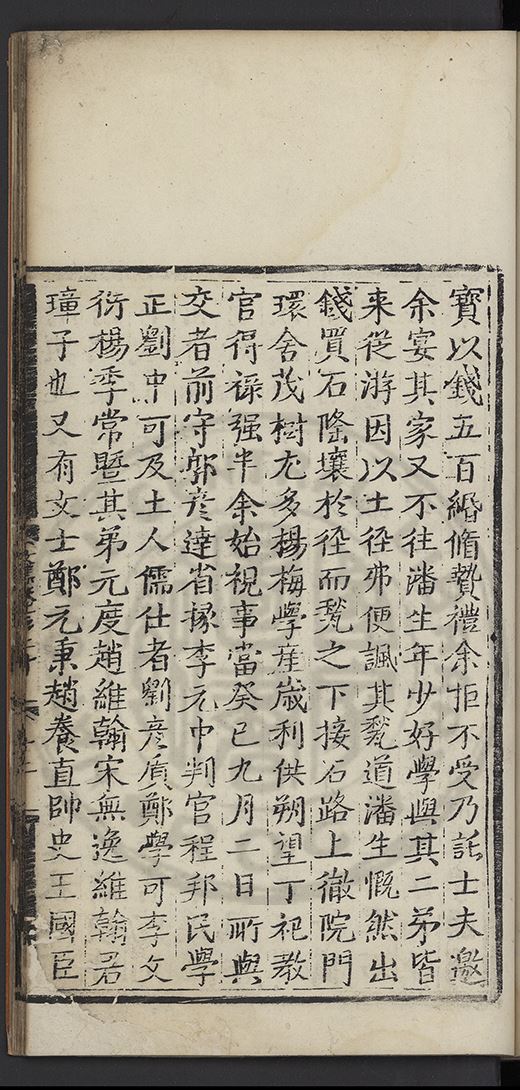 寳以錢五百緡脩贄禮余拒不受乃託士夫邀
余宴其家又不往潘生年少好學與其二弟皆
来從游因以土徑弗便諷其甃道潘生慨然出
錢買石隆壤於徑而甃之下接石路上徹院門
環舍茂樹尤多楊梅學産歳利供朔望丁祀教
官得禄强半余始視事當癸巳九月二日所與
交者前守郭彦達省掾李元中判官程邦民學
正劉中可及土人儒仕者劉彦質鄭學可李文
衍楊季常暨其弟元度趙維翰宋無逸維翰君
璋子也又有文士鄭元秉趙養直帥史王國臣